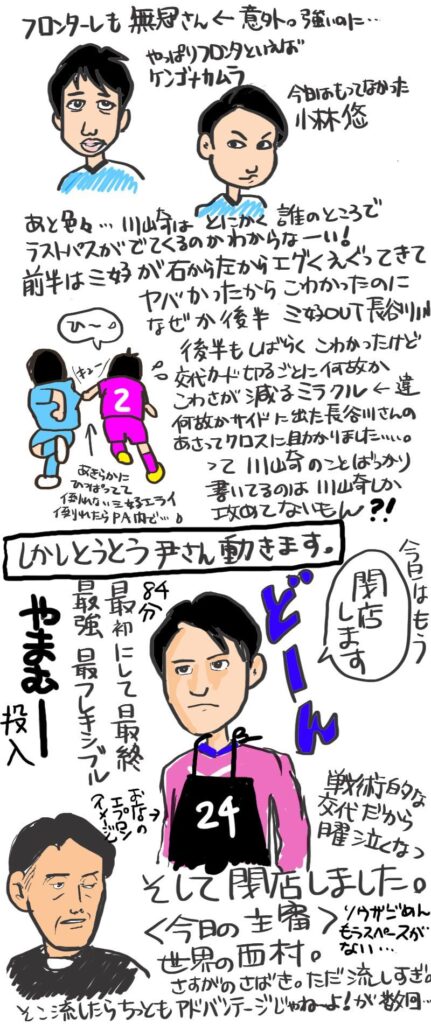 フロンターレも無冠さん←意外。強いのに…
やっぱりフロンタといえば
ケンゴナカムラ
今日はもってなかった
小林悠
あと色々…川崎はとにかく誰のところで
ラストパスがでてくるのかわからなーい!
前半は三好が右から左からエグくえぐってきて
ヤバかったからこわかったのに
なぜか後半 三好OUT長谷川IN
ひ〜。
キュー
2
あきらかに
ひっぱってて
倒れない三好エライ
倒れたらPA内で…。
後半もしばらくこわかったけど
交代カード切るごとに何故か
こわさが減るミラクル←違
何故かサイドに出た長谷川さんの
あさってクロスに助かりました……。
って川崎のことばっかり
書いてるのは川崎しか
攻めてないもん?!
しかしとうとう尹さん動きます。
今日はもう
閉店
します
どーん
84分
最初にして最終
最強 最フレキシブル
やまむー
投入
お店の
エプロン
イメージ
24
戦術的な
交代だから
曜泣くなっ
そして閉店しました。
<今日の主審>
世界の西村。
ソウザごめん
もうスペースが
ない…
さすがのさばき。ただ流しすぎ。
そこ流したらちっともアドバンテージじゃねーよ!が数回…